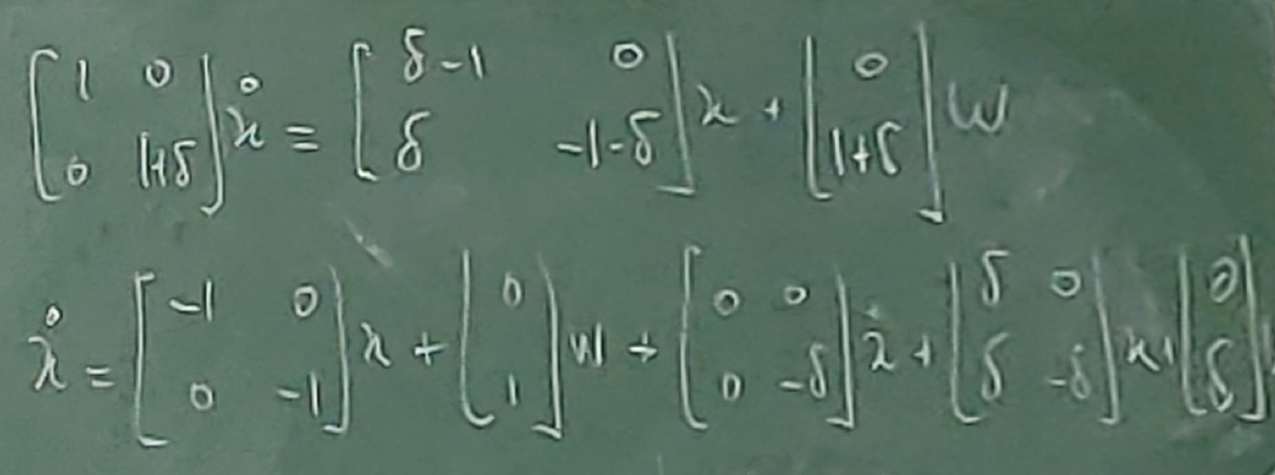 [1 0; 0 1+δ] ẋ = [δ-1 0; δ -1-δ] x + [0; 1+δ] w
ẋ = [-1 0; 0 -1] x + [0; 1] w + [0 0; 0 -δ] ẋ + [δ 0; δ -δ] x + [0; δ]